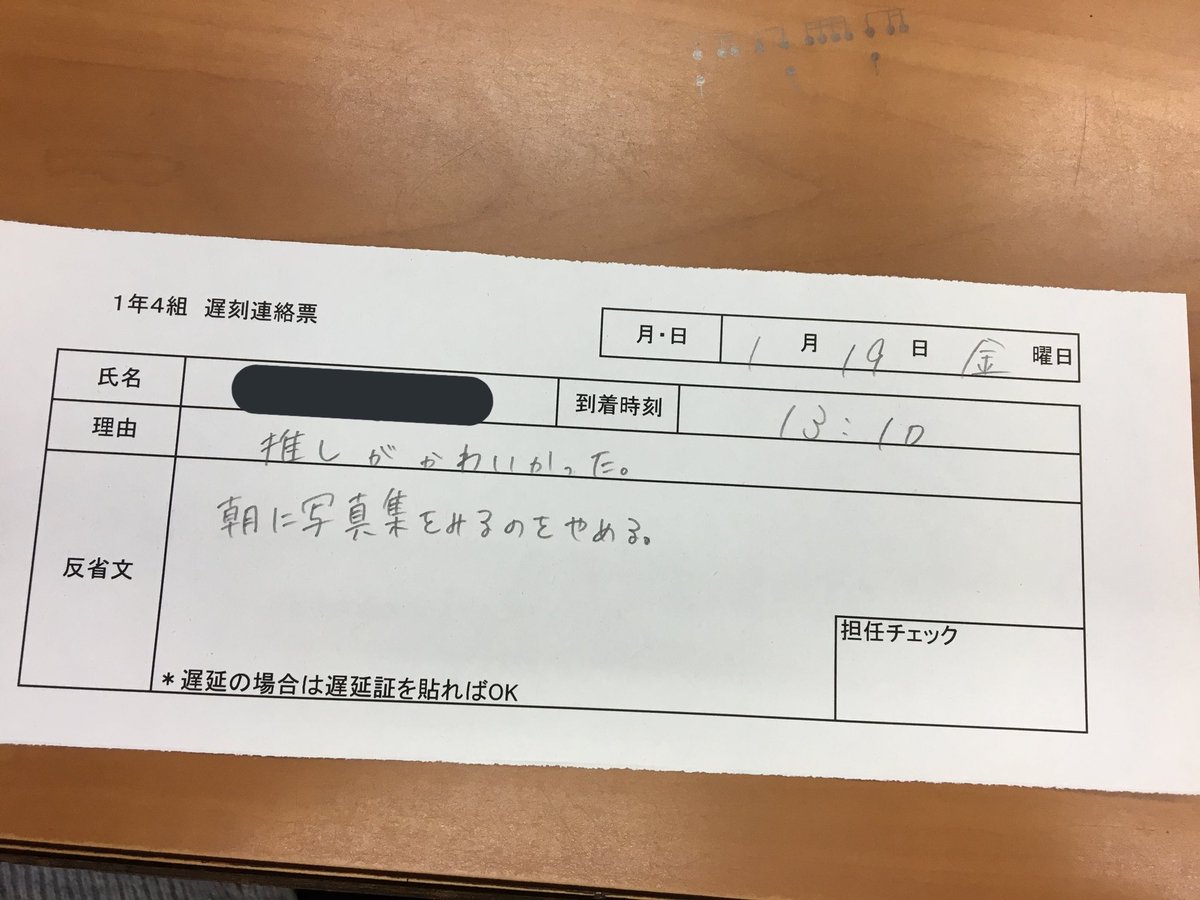 1年4組 遅刻連絡票
月・日 1月19日 金曜日
氏名
到着時刻 13:10
理由 推しがかわいかった。
反省文 朝に写真集をみるのをやめる。
担任チェック
*遅延の場合は遅延証を貼ればOK